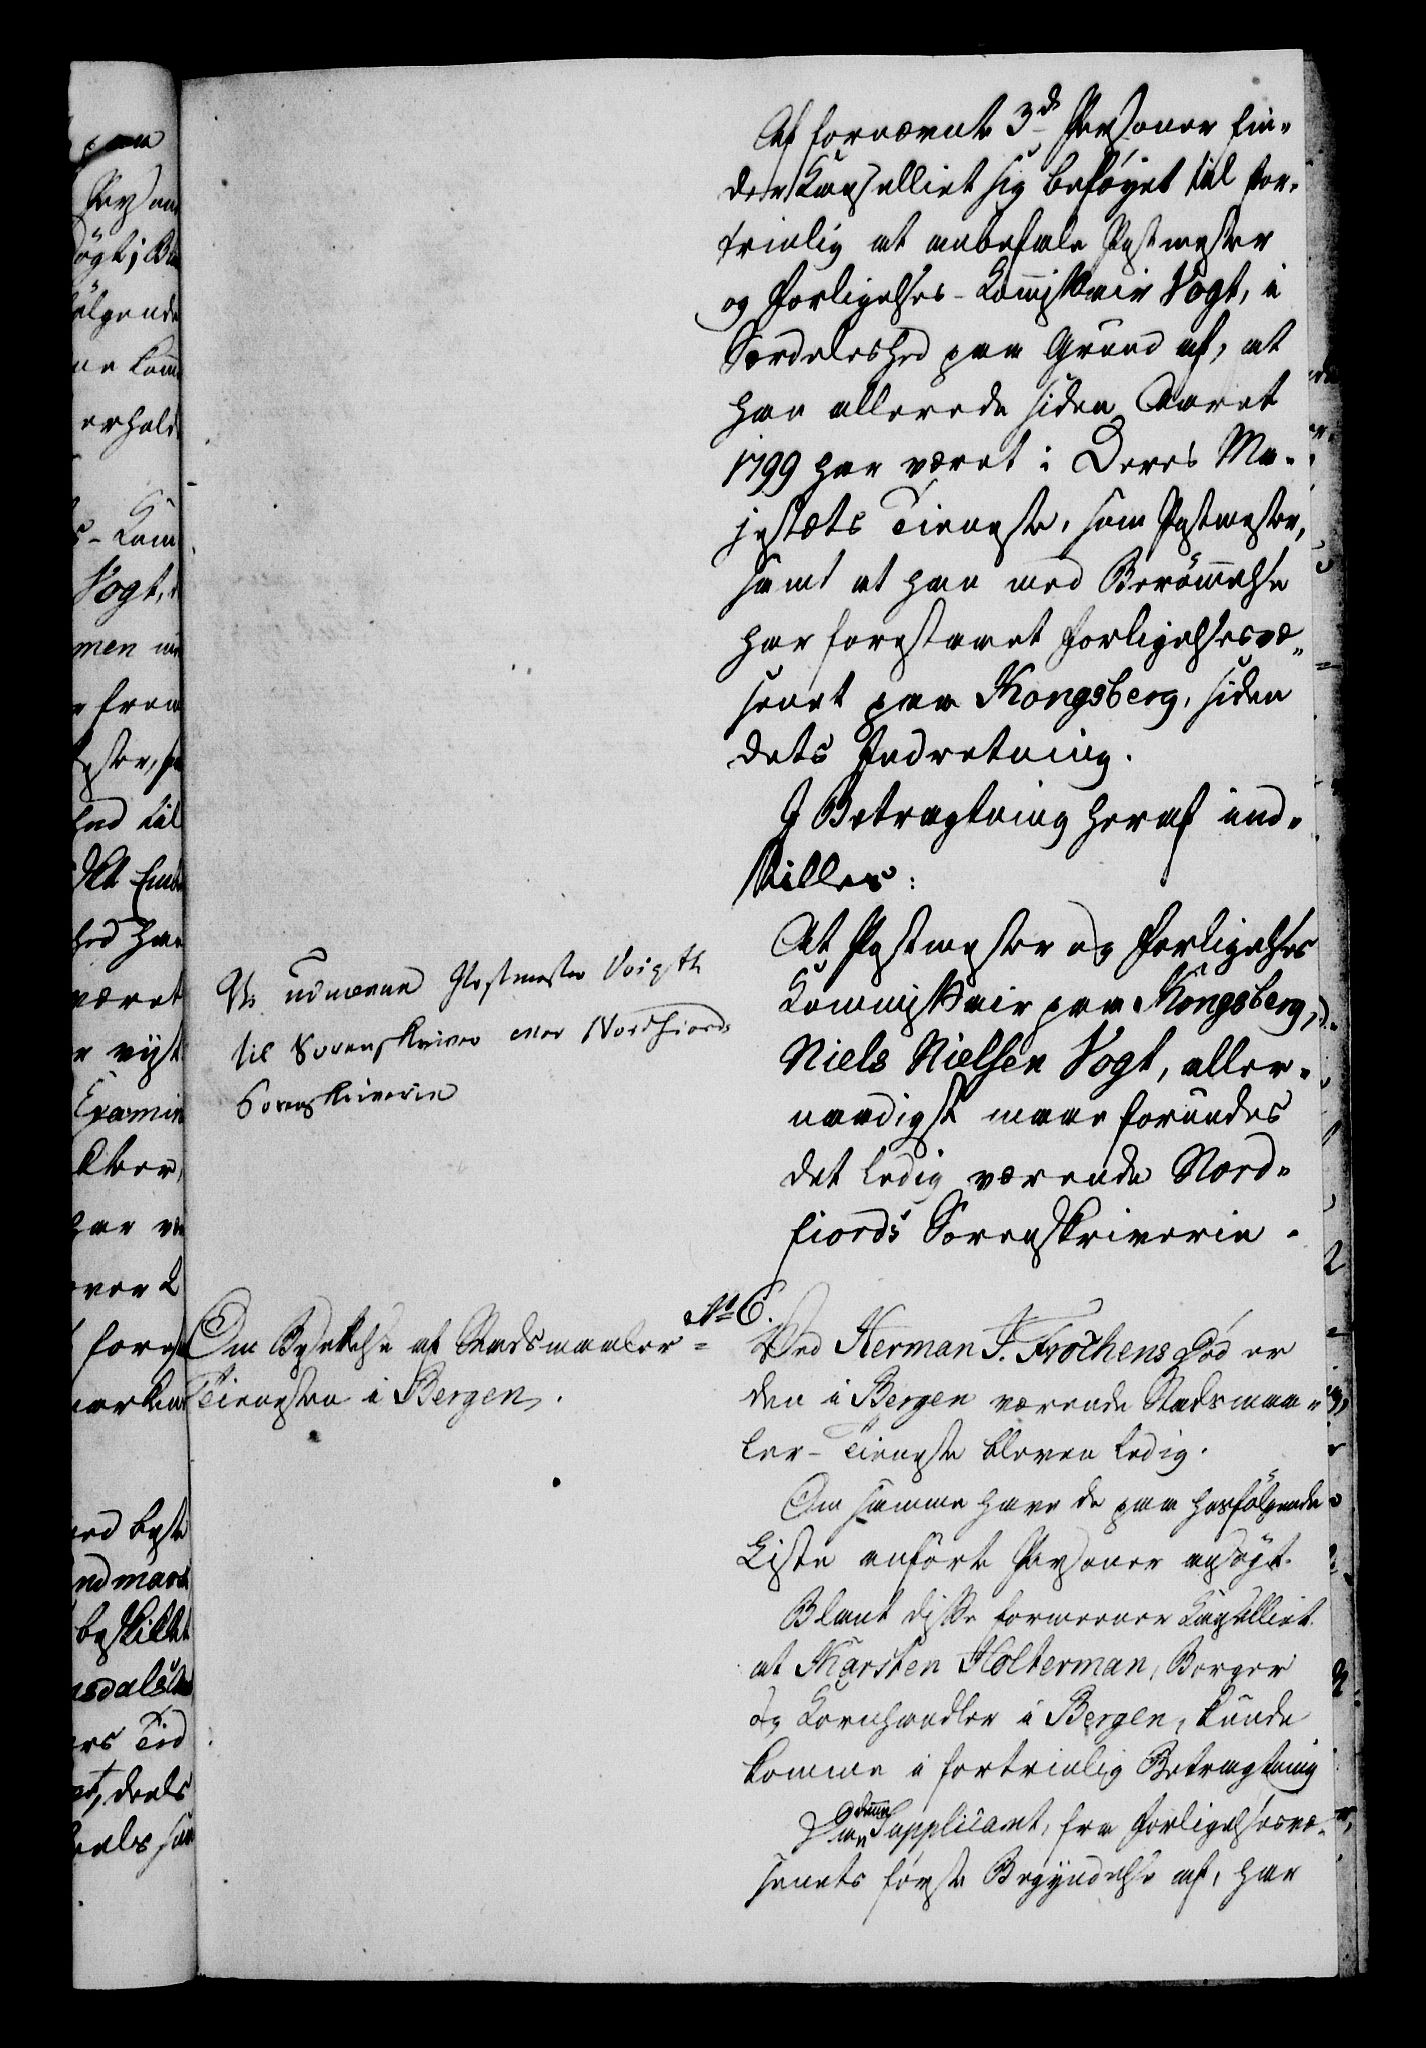 Af fornævnte 3de Personer fin-
der Kancelliet sig beføyet til for-
trinlig at anbefale Postmester
og Forligelses-Kommissair Vogt, i
Særdeleshed paa Grund af, at
han allerede siden Aaret
1799 har været i Deres Ma-
jestæts Tieneste, som Postmester,
samt at han med Berömmelse
har forestaaet Forligelsesvæ-
senet paa Kongsberg, siden
dets Indretning.
I Betragtning heraf ind-
stilles:
At Postmester og Forligelses
Kommissair paa Kongsberg,
Niels Nielsen Vogt, aller-
naadigst maae forundes
det ledig værende Nord-
fiords Sorenskriverie.
Vi udnævne Postmester Voigth
til Sorenskriver over Nordfiords
Sorenskriverie
Om Besættelse af Stadsmaaler-
Tienesten i Bergen.
No 6.
Ved Herman J. Frøchens Død er
den i Bergen værende Stadsmaa-
ler-Tieneste bleven ledig.
Om samme have de paa hosfölgende
Liste anförte Personer ansögt.
Blant disse formeener Kancelliet
at Karsten Holterman, Borger
og Kornhandler i Bergen, kunde
komme i fortrinlig Betragtning
Da denne Supplicant, fra Forligelsesvæ-
senets förste Begyndelse af, har